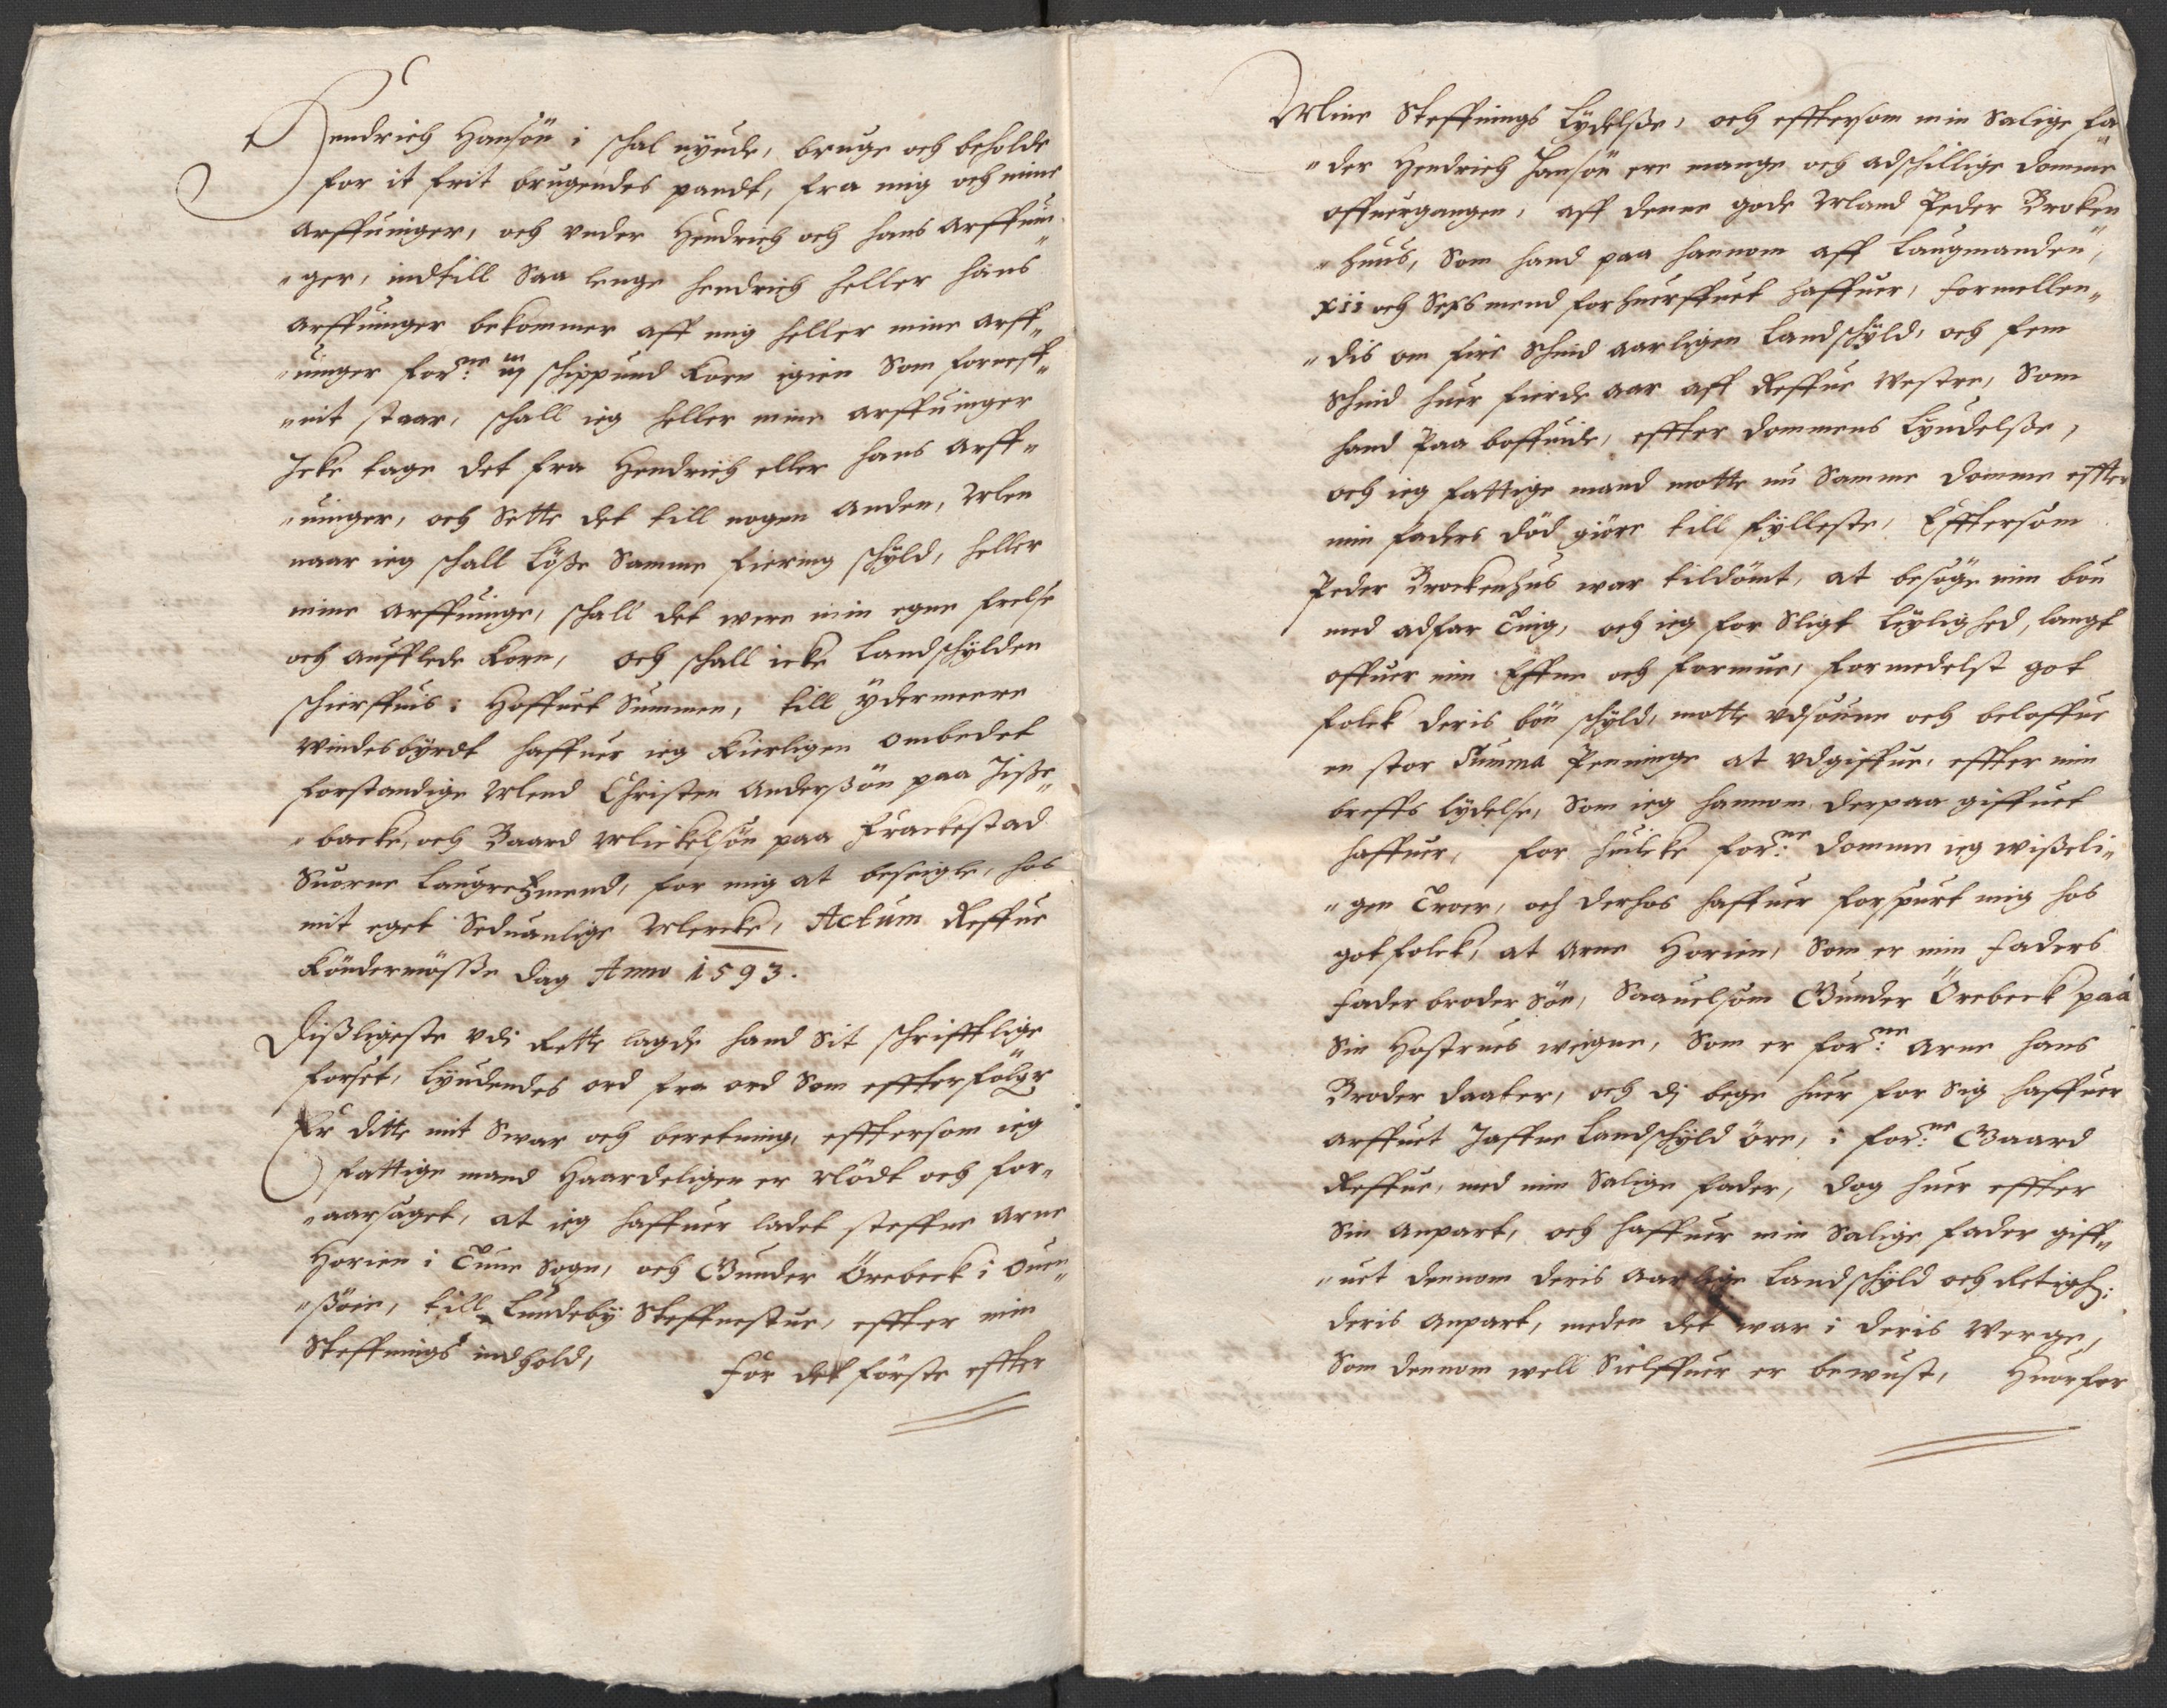 Hendrich Hansön i schal nyude, bruge och beholde
for it frit brugendes pandt, fra mig och mine
arffuinger, och vnder Hendrich och hans arffuin„
„ger, indtill Saa lenge Hendrich heller hans
arffuinger bekommer aff mig heller mine arff„
„uinger for:ne iij schippund Korn igien Som forneff„
„nit staar, schall ieg heller mine arffuinger
Icke tage det fra Hendrich eller hans arff„
„uinger, och Sette det till nogen anden, Men
naar ieg schall löße Samme fiering schyld, heller
mine arffuinge, schall det were min egne frelse
och aufflede Korn, och schall icke Landschylden
schierffuis i Hoffuet Summen, till ydermeere
windesbyrdt haffuer ieg Kierligen ombedet
forstandige Mend Christen Anderßön paa Jiße„
„backe, och Baard Mickelsön paa Frackestad
Suorne Laugretzmend, for mig at beseigle, hos
mit eget Seduanlige Mercke, Actum Reffue
Köndermöße dag Anno 1593.
Dißligeste vdj Rette lagde hand Sit schrifftlige
forset, lyudendes ord fra ord Som effterfölger
Er dette mit Swar och beretning, efftersom ieg
fattige mand Haardeligen er Nödt och for„
„aarsaget, at ieg haffuer ladet steffne Arne
Horien i Tune Sogn, och Gunder Örebeck i Onn„
„ßöin, till Lundeby Steffnestue, effter min
Steffnings indhold, For det förste effter
Mine Steffnings Lydelße, och efftersom min Salige fa„
„der Hendrich Hansön ere mange och adschillige domme
offuergangen, aff denne gode Mand Peder Broken„
„huus, Som hand paa hannom aff Laugmanden,
xii och Sexmend forhuerffuet haffuer, formellen„
„dis om fire schind aarligen Landschyld, och fem
Schind huer fierde aar aff Reffue Westre, Som
hand paa boffuide, effter dommens Lyudelße,
och ieg fattige mand motte nu Samme domme effter
min faders död giöre till fylleste, Efftersom
Peder Brockenhus war tildömt, at besöge min boe
med adfar Ting, och ieg for Sligt Leylighed, langt
offuer min Effne och formue, formedelst got
folck deris bön schyld, motte vdsoune och beloffue
en stor Summa Penninge at vdgiffue, effter min
breffs lydelse, Som ieg hannom derpaa giffuet
haffuer, for huilcke for:ne domme ieg wißeli„
„gen Troer, och derhos haffuer forspurt mig hos
gotfolck, at Arne Horien, Som er min faders
fader broder Sön, Saauelsom Gunder Örebeck paa
Sin Hostrues weigne, Som er for:ne Arne hans
Broder daater, och dj bege huer for Sig haffuer
arffuet Jaffne Landschyld öre, i for:ne Gaard
Reffue, med min Salige fader, dog huer effter
Sin anpart, och haffuer min Salige fader giff„
„uet dennom deris aarlige Landschyld och Retigh:
deris anpart, meden det war i deris Werge,
Som dennom well Sielffuer er bewust, Huorfor